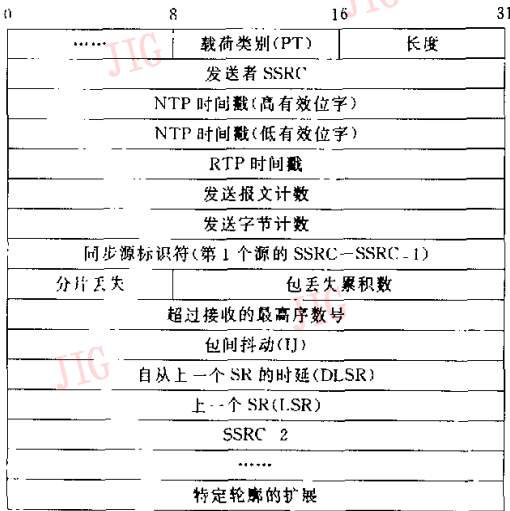 0 8 16 31
…… 载荷类别(PT) 长度
发送者 SSRC
NTP 时间戳(高有效位字)
NTP 时间戳(低有效位字)
RTP 时间戳
发送报文计数
发送字节计数
同步源标识符(第 1 个源的 SSRC-SSRC_1)
分片丢失 包丢失累积数
超过接收的最高序数号
包间抖动(IJ)
自从上一个 SR 的时延(DLSR)
上一个 SR(LSR)
SSRC 2
……
特定轮廓的扩展
JIG
JIG
JIG
JIG